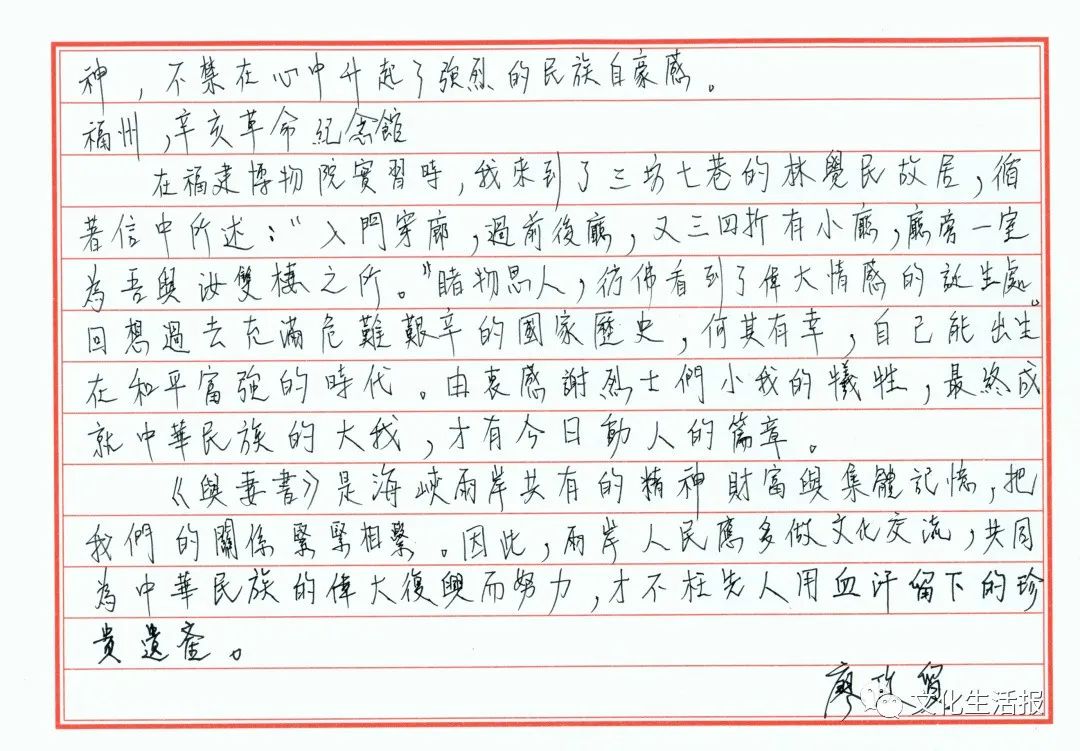 神，不禁在心中升起了強烈的民族自豪感。
福州，辛亥革命紀念館
在福建博物院實習時，我來到了三坊七巷的林覺民故居，循
著信中所述：“入門穿廊，過前後廳，又三四折有小廳，廳旁一室
為吾與汝雙棲之所。”睹物思人，彷彿看到了偉大情感的誕生處。
回想過去充滿危難艱辛的國家歷史，何其有幸，自己能出生
在和平富強的時代。由衷感謝烈士們小我的犧牲，最終成
就中華民族的大我，才有今日動人的篇章。
《與妻書》是海峽兩岸共有的精神財富與集體記憶，把
我們的關係緊緊相繫。因此，兩岸人民應多做文化交流，共同
為中華民族的偉大復興而努力，才不枉先人用血汗留下的珍
貴遺產。
廖
文化生活报